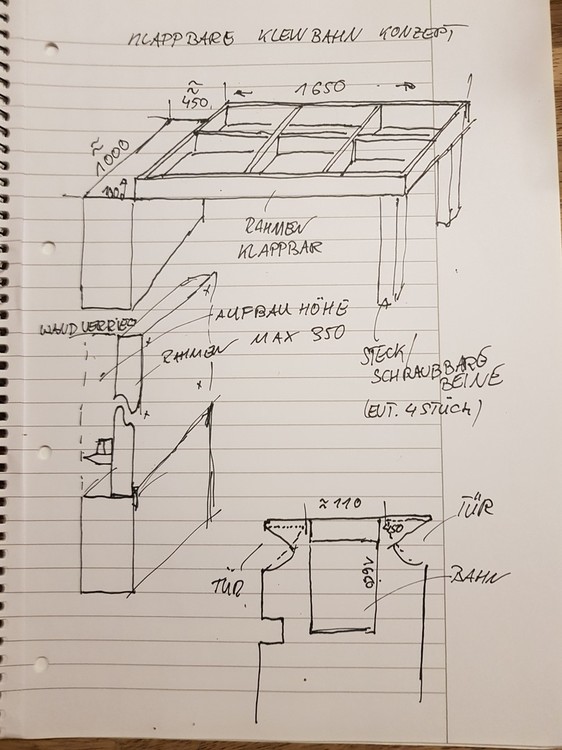 KLAPPBARE KLEINBAHN KONZEPT
≈ 450
1650
≈ 1000
100
RAHMEN
KLAPPBAR
AUFBAU HÖHE
MAX 350
RAHMEN
STECK/
SCHRAUBBARE
BEINE
(EVT. 4 STÜCK)
≈ 110
450
TÜR
TÜR
1600
BAHN